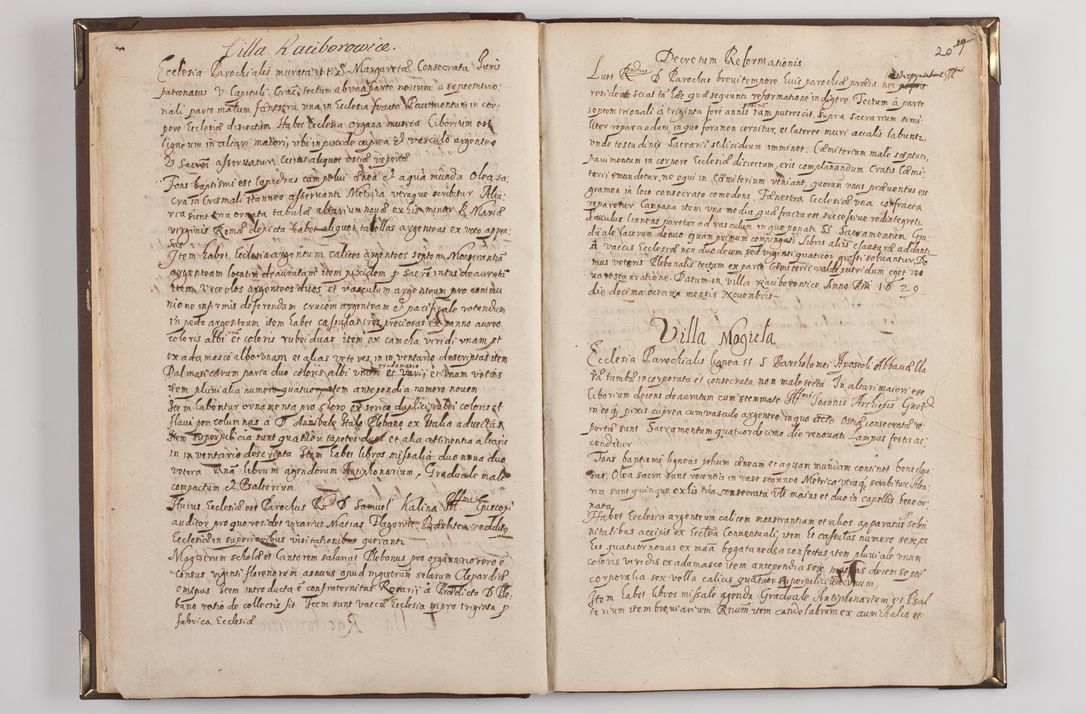 Villa Raciborowice.
Ecclesia Parochialis murata tt S. Margaretæ Consecrata Juris
patronatus V Capituli Crac. tectum ab una parte novum a septentrio-
nali parte malum fænestra una in Ecclesia Pavimentum in cor
pore Ecclesiæ disiectum Habet Ecclesia organa musica Ciborium est
ligneum in altari maiori, ubi in pixide cuprea et vasculo argenteo
V Sacrm asservatur
Fons baptismi est lapideus cum pelvi ænea et aqua munda Olea sa
cra in Crismali stanneo asservantur Metrica utraque scribitur Alta
ria sunt tria ornata tabulæ altarium novæ ex his minor B Mariæ
virginis Romæ depicta habet aliquot tabellas argenteas ex voto appen
sas
Item habet Ecclesia argentum calices argenteos septem, Monstrantiam
argenteam locatim deauratam item pixidem p Sacro intus deauratam
item urceolos argenteos duos et vasculum argenteum pro commu
nione infirmis deferendam crucem argenteam et pacificale rotundum
in pede argenteum item habet casulas tres preciosas ex panno aureo
coloris albi et coloris rubei duas item ex camcha viridi unam et
ex adamasco albo unam et alias veteres in inventario descriptas item
Dalmaticarum paria duo coloris albi unum et varii et unam
item pluvialia numero quatuor item antependia numero novem
Item habentur ornamenta pro choro ex serico duplici rubei coloris et
flavi per columnas a D Annibale Italo Plebano ex Italia advectas
Item superpelicia sunt quatuor tapetes duo et alia attinentia altaris
in inventario descripta Item habet libros missalia duo nova duo
vetera unum librum agendorum Antiphonarium, Graduale male
compactum et Psalterium.
Huius Ecclesiæ est Parochus Rndus D Samuel Kalina Illmi Episcopi
auditor pro quo residet vicarius Matias
Ecclesiæ in superioribus visitationibus quærantur
Magistrum scholæ et Cantorem salariat Plebanus pro organario vero e
census viginti florenorum annuus apud mgistrum
empus Item introducta e confraternitas Rosarii a Prædicto D Ple
bano ratio de collectis fit Item sunt vaccæ Ecclesiæ supra triginta p
fabrica Ecclesiæ
20 19
Decretum Reformationis
Licet Rndus D Parochus brevi tempore huic parochiæ præsit nec
resideret sciat tn has quæ sequuntur reformatione indigere. Tectum a parte
septemtrionali a triginta fere annis iam putrescit. Supra Sacrarium simi
liter reparandum, in quo foramen cernitur, et lateres muri avulsi labuntur,
unde testudinis Sacrarii stillicidium imminet. Cæmiterium male sæptum,
pavimentum in corpore Ecclesiæ disiectum, erit complanandum Cratis Cæmi
terii emundetur, ne equi in Cæmiterium veniant, quorum unus præventus est
gramen in loco consecrato comedens. Fænestra Ecclesiæ una confracta
reparetur Campana item una media quæ fracta est successive redintegretur.
Vasculus linneus paretur ad vasculum in quo ponatur SS Sacramentum Gra
duale lacerum denuo quam primum compingatur Libris aliis clausuræ addantur
A vaccis Ecclesiæ non duodecim sed viginti quatuor grossi solvantur. Do
mus veteris Plebanalis tectum ex parte Cæmiterii valde putridum eget reno
vatione. Datum in Villa Raciborowice Anno Dni 1629
die decima octava mensis Novembris
Villa Mogiela
Ecclesia Parochialis lignea tt S Bartholomei Apostoli Abbati Cla
ræ tumbæ incorporata et consecrata non male tecta In altari maiori est
Ciborium decens deauratum cum stemmate Illmi Joannis Archiepis Gnezn
in eoq pixis cuprea cum vasculo argenteo in quo octo Ostiæ consecratæ re
pertæ sunt Sacramentum quatuordecimo die renovatur Lampas festis ac
cenditur
Fons baptismi ligneus pelvim æneam et aquam mundam continet bene clau
sus. Olea sacra sunt recentia in vase stanneo Metrica utraq scribitur. Alta
ria sunt quinque ex his tria consecrata uti maius et duo in capellis bene or
nata
Habet Ecclesia argenteum calicem monstrantiam et alios apparatus solen
nitatibus accipit ex Ecclesia Conventuali, item et casulas numero sex,
his quatuor novas ex confectus item pluviale unum
coloris viridis ex adamasco item antependia sex mappas decem septem
corporalia sex vella calicis quatuor superpeliceum unum,
Item habet libros missale agenda Graduale Antiphonarium et Psal
terium item breviarium Rnum item candelabrum ex aurichalco et